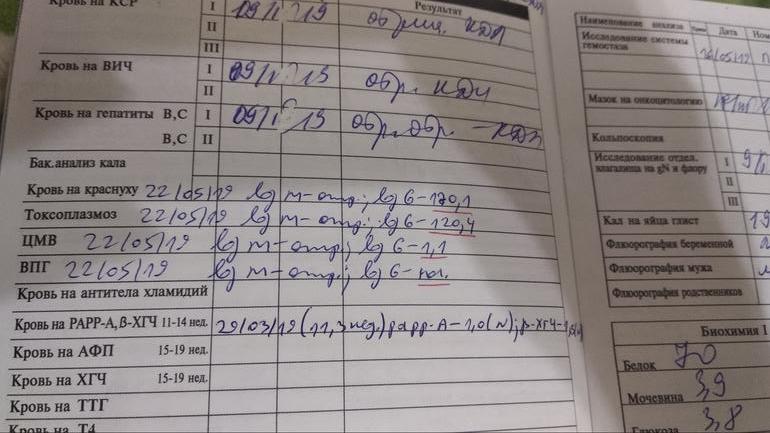 Кровь на КСР I 09/IV 19 отриц. КДЛ
Результат
II
III
Кровь на ВИЧ I 09/IV 19 отр. КДЛ
II
Кровь на гепатиты В,С I 09/IV 19 отр. отр. – КДЛ
В,С II
Бак.анализ кала
Кровь на краснуху 22/05/19 Ig m – отр.; Ig G – 170,1
Токсоплазмоз 22/05/19 Ig m – отр.; Ig G – 120,4
ЦМВ 22/05/19 Ig m – отр.; Ig G – 1,1
ВПГ 22/05/19 Ig m – отр.; Ig G – пол.
Кровь на антитела хламидий
Кровь на РАРР-А,β-ХГЧ 11-14 нед. 29/03/19 (11,3 нед.) papp-A – 1,0 (N); β-ХГЧ –
Кровь на АФП 15-19 нед.
Кровь на ХГЧ 15-19 нед.
Кровь на ТТГ
Кровь на Т4
Наименование анализа Дата
Исследование системы
гемостаза
Мазок на онкоцитологию
Кольпоскопия
Исследование отдел. I
влагалища на gN и флору
II
III
Кал на яйца глист
Флюорография беременной
Флюорография мужа
Флюорография родственников
Биохимия I
Белок 70
Мочевина 3,9
Глюкоза 3,8